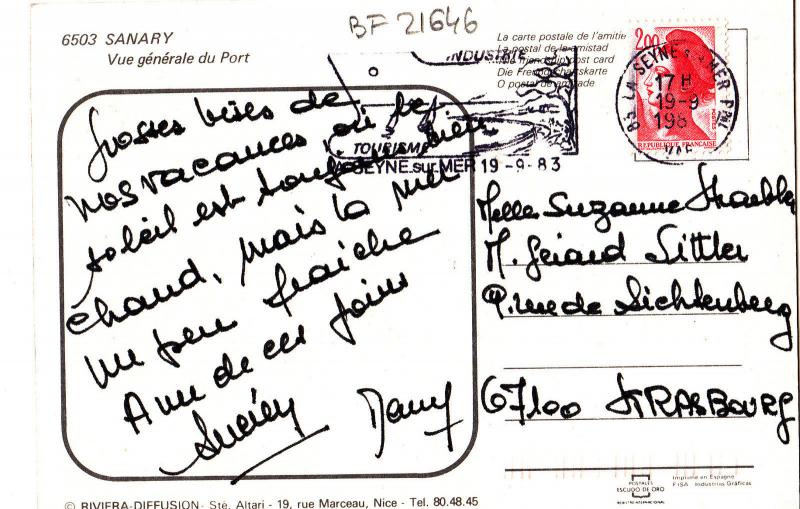 BF 21646
6503 SANARY
Vue générale du Port
La carte postale de l'amitié
La postal de la amistad
The friendship post card
Die Freundschaftskarte
O postal de amizade
INDUSTRIE
TOURISME
LA SEYNE sur MER 19-9-83
2,00
83 LA SEYNE S MER PPAL
17 H
19-9
198
VAR
REPUBLIQUE FRANÇAISE
Grosses bises de
nos vacances où le
soleil est toujours bien
chaud, mais la mer
un peu fraîche
A un de ces jours
Lucien Dany
Melle Suzanne
M. Gérard Sittler
rue de Lichtenberg
67100 STRASBOURG
© RIVIERA-DIFFUSION - Sté. Altari - 19, rue Marceau, Nice - Tel. 80.48.45
POSTALES
ESCUDO DE ORO
REGISTRO INTERNACIONAL
Imprimé en Espagne
FISA Industrias Gráficas